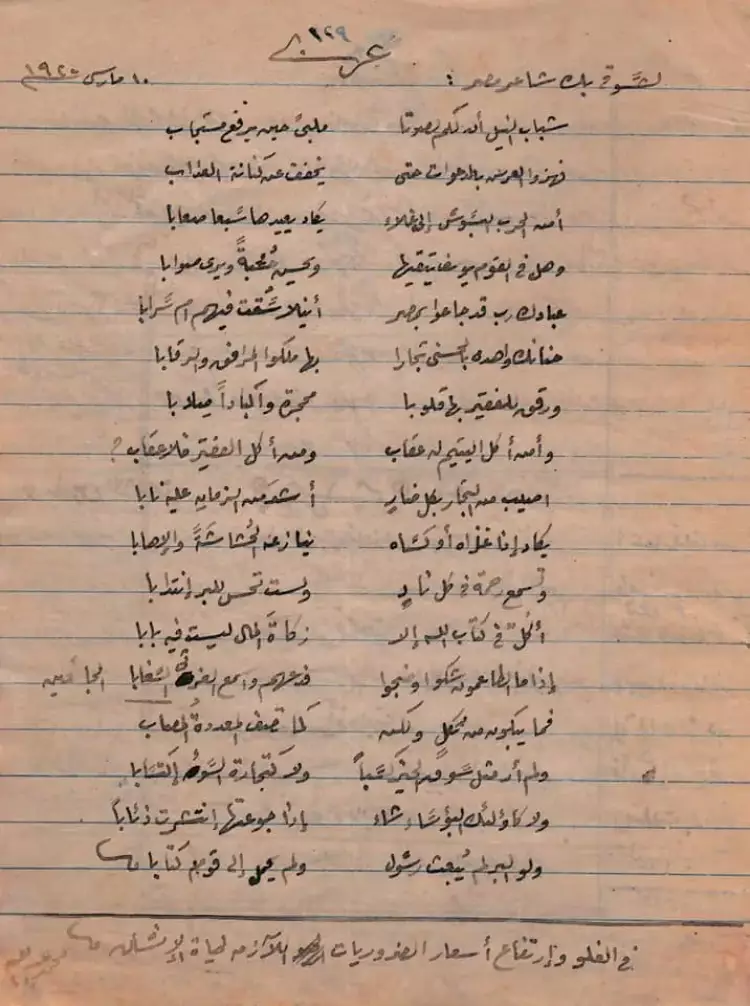 ٢٢٩
لشوقي بك شاعر مصر : ١٠ مارس
شباب النيل أن لكم لصوتا ملبىً حين يرفع مستجاب
فهزوا العرش بالدعوات حتى يخفف عن كنانة العذاب
أمن الحرب البسوس إلى غلاء يكاد يعيدها سبعا صعابا
وهل في القوم يوسف يتقيها ويحسن حُسْبةً ويرى صوابا
عبادك رب قد جاعوا بمصر أنيلا سُقْتَ فيهم ام سَرابا
حنانك واهد بالحسنى تجارا بها ملكوا المرافق والرقابا
ورقق للفقير بها قلوبا محجرة وأكباداً صلابا
وأمن أكل اليتيم له عقاب ومن أكل الفقير فلا عقاب ؟
اصيب من التجار بكل ضار أشد من الزمان عليه نابا
يكاد إذا غذاه أو كساه ينازعه الحُشاشَةَ والإهابا
وتسمع رحمة في كل نادٍ ولست تحس للبر إنتدابا
أكُلٌّ في كتاب الله إلا زكاة المال ليست فيه بابا
إذا ما الطاعمون شكوا وضجوا فدعهم واسمع الغرثى السغابا الجائعين
فما يبكون من ثكل ولكن كما تصف المعددةُ المصاب
ولم أر مثل سوق الخير كسباً ولا كتجارة السوء إكتسابا
ولا كأولئك البؤساء شاء إذا جوعتها إنتشرت ذئاباً
ولو البر لم يُبعث رسول ولم يحمل إلى قوم كتابا
في الغلو وإرتفاع أسعار الضروريات اللازمه لحياة الإنسان